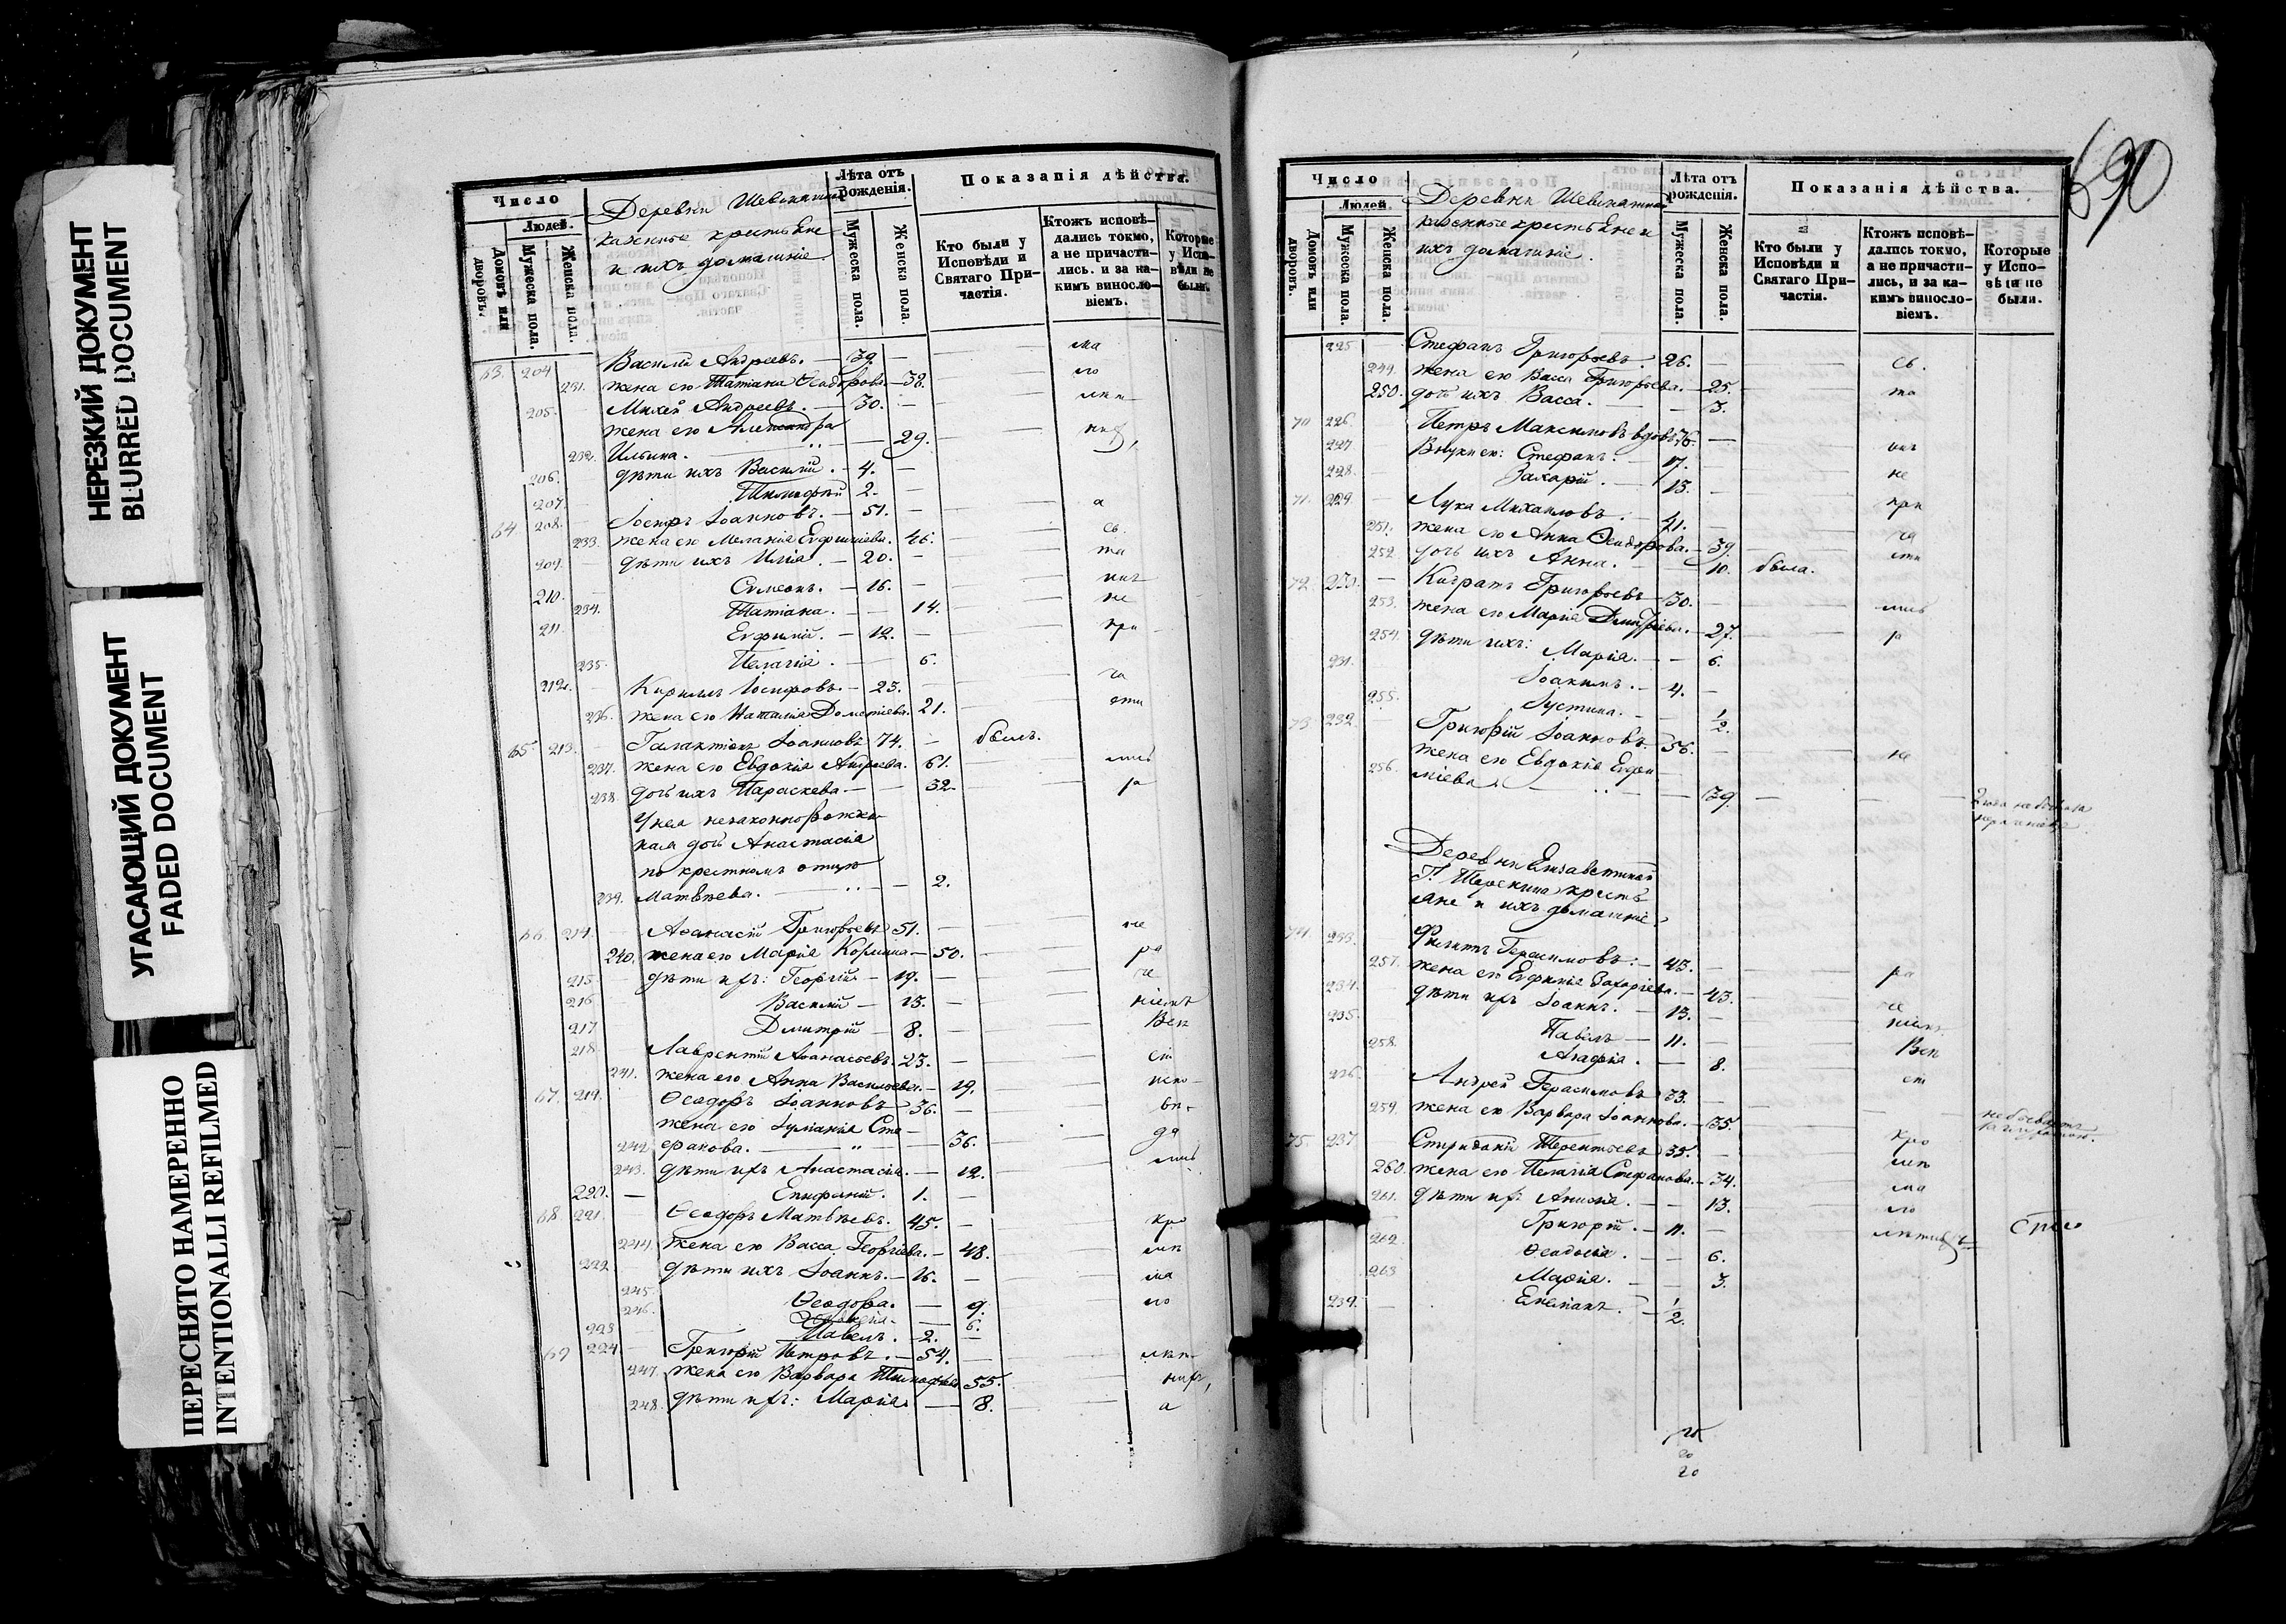 НЕРЕЗКИЙ ДОКУМЕНТ
BLURRED DOCUMENT
УГАСАЮЩИЙ ДОКУМЕНТ
FADED DOCUMENT
ПЕРЕСНЯТО НАМЕРЕННО
INTENTIONALLI REFILMED
Число
Людей.
Домовъ или дворовъ.
Мужеска пола.
Женска пола.
Деревни
казенные крестьяне
и ихъ домашніе
Лѣта отъ рожденія.
Мужеска пола.
Женска пола.
Показанія дѣйства.
Кто были у Исповѣди и Святаго Причастія.
Ктожъ исповѣдались токмо, а не причастились. и за какимъ винословіемъ.
Которые у Исповѣди не были.
63. 204 Василій Андреевъ. — 39. — ма
231. жена его Татіана Ѳеодорова. — 38. ло
205. Михей Андреевъ. — 30. —
жена его Александра
232. Ильина. — 29.
206. дѣти ихъ Василій. — 4. —
207. Тимофей 2. —
64 208. Іосифъ Іоанновъ. — 51. — а
233. жена его Меланія Евфиміева. 46. съ
209. дѣти ихъ Илія. — 20. — та
210. Симеонъ. — 16. —
234. Татіана. — 14. не
211. Евфимій. — 12. — при
235. Пелагія. — 6.
212. Кириллъ Іосифовъ. — 23. — ча
236. жена его Наталія Дометіева. 21. сти
65. 213. Галактіонъ Іоанновъ 74. — былъ.
237. жена его Евдокія Андреева. 61. лись
238. дочь ихъ Параскева — 32. — р
У нея незаконнорожден
ная дочь Анастасія
по крестномъ отцѣ
239. Матвѣева. — 2.
66. 214. Аѳанасій Григорьевъ 51. — не
240. жена его Марія — 50. — ра
215 дѣти ихъ: Георгій — 19. — че
216 Василій — 15. — ніемъ
217 Дмитрій — 8. — Вел
218 Лаврентій Аѳанасьевъ. 23. — ст
241. жена его Анна Васильева. — 19.
67. 219. Ѳеодоръ Іоанновъ 36. —
жена его Іуліанія Сте-
242 фанова. — 36. да
243. дѣти ихъ Анастасія. — 12. лись
220. — Епифаній. 1. —
68 221. Ѳеодоръ Матвѣевъ. 45. — кро
244. жена его Васса Георгіева. — 48.
222. дѣти ихъ Іоаннъ. — 16. — ма
245. Ѳеодора. — 9. ло
246. 6.
223 Павелъ. — 2. —
69 224. Григорій Петровъ. — 54. — лѣт
247. жена его Варвара 55.
248. дѣти ихъ: Марія — 8. а
690
Число
Людей.
Домовъ или дворовъ.
Мужеска пола.
Женска пола.
Деревни
казенные крестьяне и
ихъ домашніе.
Лѣта отъ рожденія.
Мужеска пола.
Женска пола.
Показанія дѣйства.
Кто были у Исповѣди и Святаго Причастія.
Ктожъ исповѣдались токмо, а не причастились, и за какимъ винословіемъ.
Которые у Исповѣди не были.
225 Стефанъ Григорьевъ. 26. — съ.
249. жена его Васса Григорьева. — 25. та
250. дочь ихъ Васса. — 3.
70 226. Петръ Максимовъ вдовъ 76. —
227 Внуки его: Стефанъ. — 17. —
228. Захарій. — 13. — не
71. 229. Лука Михаиловъ. — 41. — при
251. жена его Анна Ѳеодорова. — 39. ча
252. дочь ихъ Анна. — 10. была. сти
72. 230. — Кондратъ Григорьевъ — 30. —
253. жена его Марія Димитріева. — 27. лись
254. дѣти ихъ: Марія. — 6. р
231. Іоакимъ. — 4. —
255. Іустина. — 1/2.
73 232. Григорій Іоанновъ. — 56. — не
жена его Евдокія Евфи
256. міева. — 39
Деревни Елизаветиной
Г. кресть
яне и ихъ домашніе.
74. 233. Герасимовъ: — 43. —
257. жена его Евфимія Захаріева. — 43. ра
234. дѣти ихъ Іоаннъ. — 13. — че
235. Павелъ — 11. — ніемъ
258. Агафія. — 8. Вел
236. Андрей Герасимовъ 33. — ст
259. жена его Варвара Іоаннова. — 35.
75. 237 Спиридонъ Терентьевъ 35. — кро
260. жена его Пелагія Стефанова. — 34.
261. дѣти ихъ Анисія. — 13. ма
Григорій. — 11. — ло
262. Ѳеодосія. — 6.
263 Марія. — 3.
239. Емеліанъ. — 1/2.
20
20